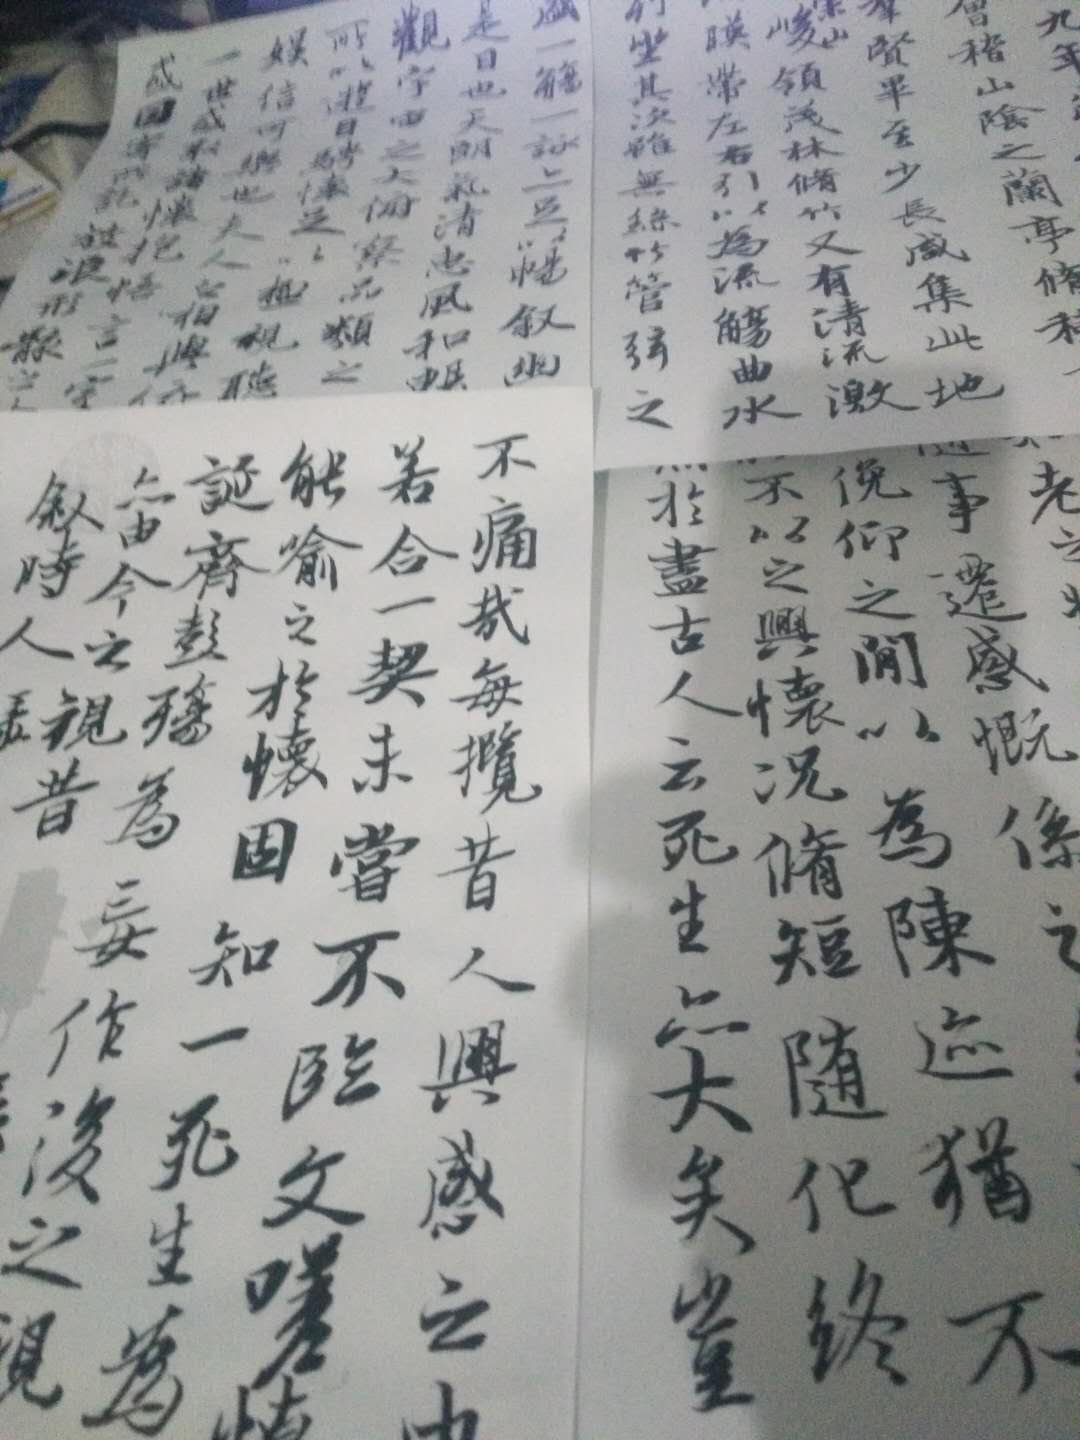 九年
會稽山陰之蘭亭脩禊
羣賢畢至少長咸集此地
崇山
峻領茂林脩竹又有清流激
暎帶左右引以為流觴曲水
列坐其次雖無絲竹管弦之
盛一觴一詠亦足以暢叙幽
是日也天朗氣清惠風和暢
觀宇宙之大俯察品類之
所以遊目騁懷足以極視聽
娱信可樂也夫人之相與俯
一世或取諸懷抱悟言一室
或因寄所託放浪形骸之
老之將
隨事遷感慨係之
俛仰之間以為陳迹猶不
不以之興懷況脩短隨化終
於盡古人云死生亦大矣豈
不痛哉每攬昔人興感之由
若合一契未嘗不臨文嗟悼
能喻之於懷固知一死生為
誕齊彭殤為妄作後之視
亦由今之視昔
叙時人